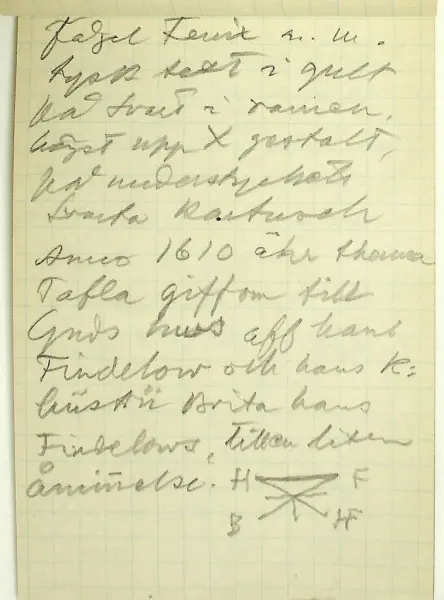 Fågel Fenix m. m.
tysk text i gult
på svart i ramen.
högst upp X gestalt,
på understyckets
svarta kartusch
Anno 1610 ähr thenna
Tafla giffven till
Guds hus aff hans
Findelow och hans k:
hüstrü Brita hans
Findelows, till en liten
Åminelse.
H F
B HF